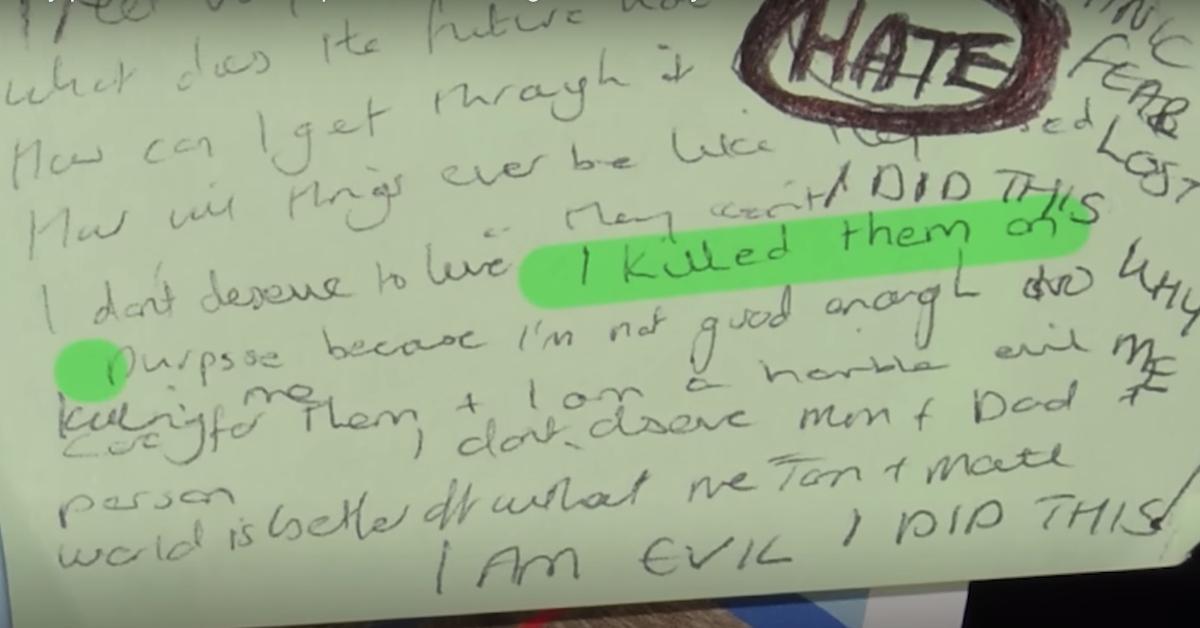 what does the future
How can I get through it
HATE
PANIC
FEAR
LOST
How will things ever be like they used
they can't I DID THIS
I don't deserve to live I killed them on
WHY
ME
purpose because I'm not good enough to
care for them + I am a horrible evil
person I don't deserve Mum + Dad +
world is better off without me Tom + Matt
I AM EVIL I DID THIS